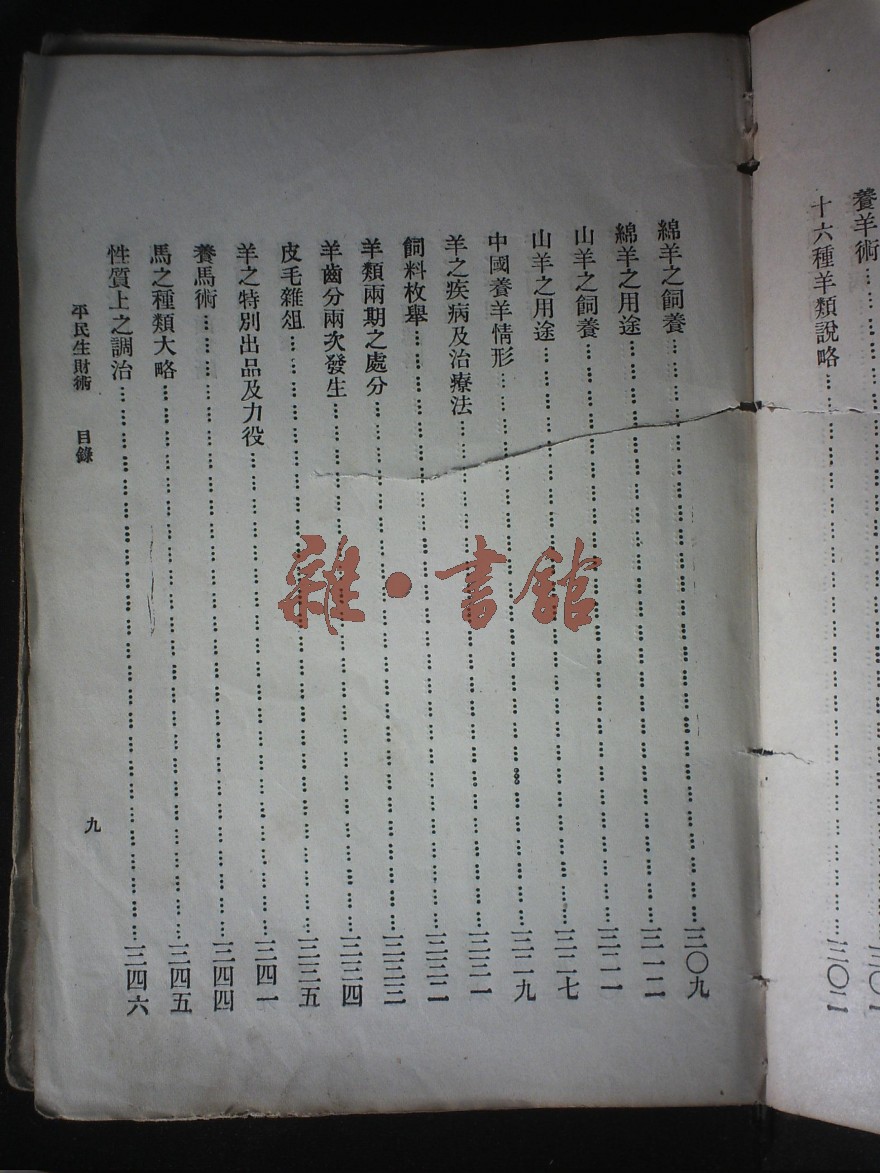 養羊術……三〇一
十六種羊類說略……三〇二
綿羊之飼養……三〇九
綿羊之用途……三一二
山羊之飼養……三二一
山羊之用途……三二七
中國養羊情形……三二九
羊之疾病及治療法……三三一
飼料枚舉……三三二
羊類兩期之處分……三三三
羊齒分兩次發生……三三四
皮毛雜俎……三三五
羊之特別出品及力役……三四一
養馬術……三四四
馬之種類大略……三四五
性質上之調治……三四六
平民生財術 目錄 九
雜·書館